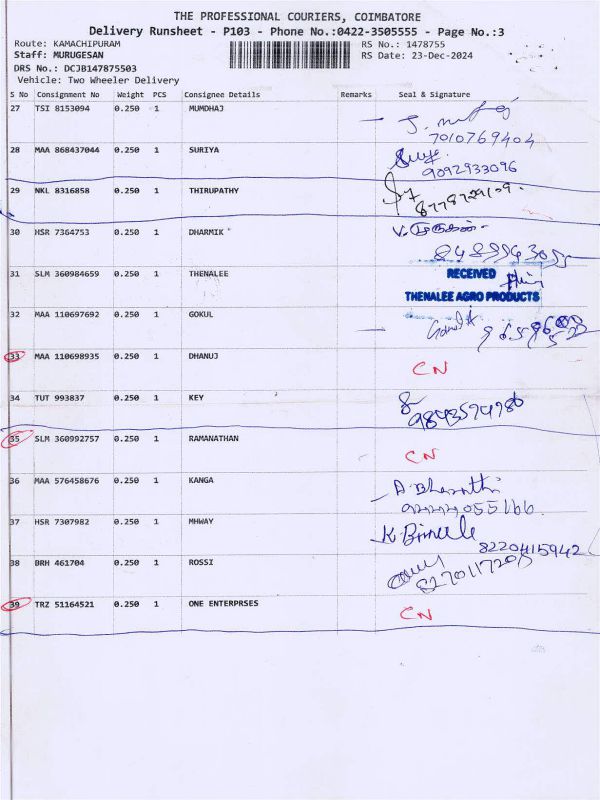 THE PROFESSIONAL COURIERS, COIMBATORE
Delivery Runsheet - P103 - Phone No.:0422-3505555 - Page No.:3
Route: KAMACHIPURAM RS No.: 1478755
Staff: MURUGESAN RS Date: 23-Dec-2024
DRS No.: DCJB147875503
Vehicle: Two Wheeler Delivery
S No Consignment No Weight PCS Consignee Details Remarks Seal & Signature
27 TSI 8153094 0.250 1 MUMDHAJ
7010769404
28 MAA 868437044 0.250 1 SURIYA
9092933096
29 NKL 8316858 0.250 1 THIRUPATHY
30 HSR 7364753 0.250 1 DHARMIK
V. முருகன்
31 SLM 360984659 0.250 1 THENALEE
RECEIVED
THENALEE AGRO PRODUCTS
32 MAA 110697692 0.250 1 GOKUL
33 MAA 110698935 0.250 1 DHANUJ
CN
34 TUT 993837 0.250 1 KEY
9843574986
35 SLM 360992757 0.250 1 RAMANATHAN
CN
36 MAA 576458676 0.250 1 KANGA
A. Bharathi
37 HSR 7307982 0.250 1 MHWAY
8220415942
38 BRH 461704 0.250 1 ROSSI
39 TRZ 51164521 0.250 1 ONE ENTERPRSES
CN